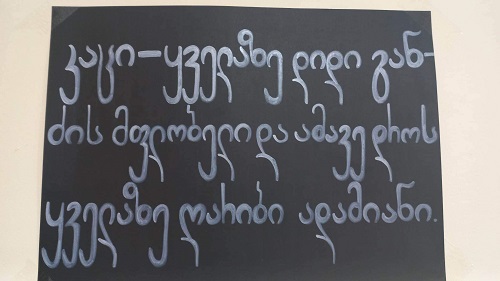 კაცი – ყველაზე დიდი გან-
ძის მფლობელი და ამავე დროს
ყველაზე ღარიბი ადამიანი.